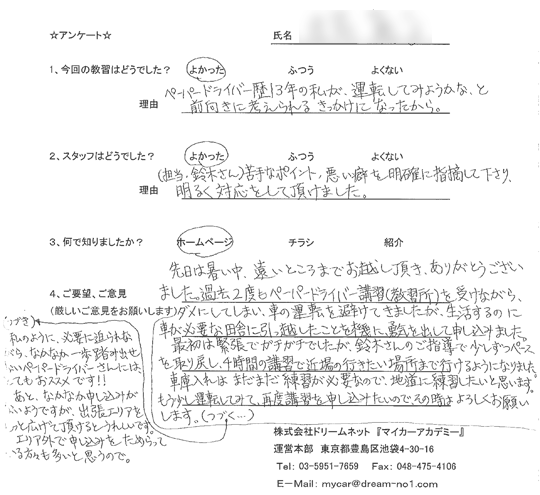 ☆アンケート☆ 氏名
1、今回の教習はどうでした？ よかった ふつう よくない
ペーパードライバー歴13年の私が、運転してみようかな、と
理由 前向きに考えられるきっかけになったから。
2、スタッフはどうでした？ よかった ふつう よくない
(担当、鈴木さん)苦手なポイント、悪い癖を明確に指摘して下さり、
理由 明るく対応をして頂けました。
3、何で知りましたか？ ホームページ チラシ 紹介
先日は暑い中、遠いところまでお越し頂き、ありがとうござい
4、ご要望、ご意見 ました。過去2度もペーパードライバー講習(教習所)を受けながら、
(厳しいご意見をお願いします) ダメにしてしまい、車の運転を避けてきましたが、生活するのに
車が必要な田舎に引っ越したことを機に、勇気を出して申し込みました。
最初は緊張でガチガチでしたが、鈴木さんのご指導で少しずつペース
を取り戻し、4時間の講習で近場の行きたい場所まで行けるようになりました。
車庫入れはまだまだ練習が必要なので、地道に練習したいと思います。
もう少し運転してみて、再度講習を申し込みたいので、その時はよろしくお願い
します。(つづく…)
つづき)
私のように、必要に迫られな
がら、なかなか一歩踏み出せ
ないペーパードライバーさんには
とてもおススメです!!
あと、なかなか申し込みが
ようですが、出張エリアを
もっと広げて頂けるとうれしいです。
エリア外で申し込みをためらって
いる方々も多いと思うので。
株式会社ドリームネット 『マイカーアカデミー』
運営本部 東京都豊島区池袋4-30-16
Tel: 03-5951-7659 Fax: 048-475-4106
E-Mail: mycar@dream-no1.com